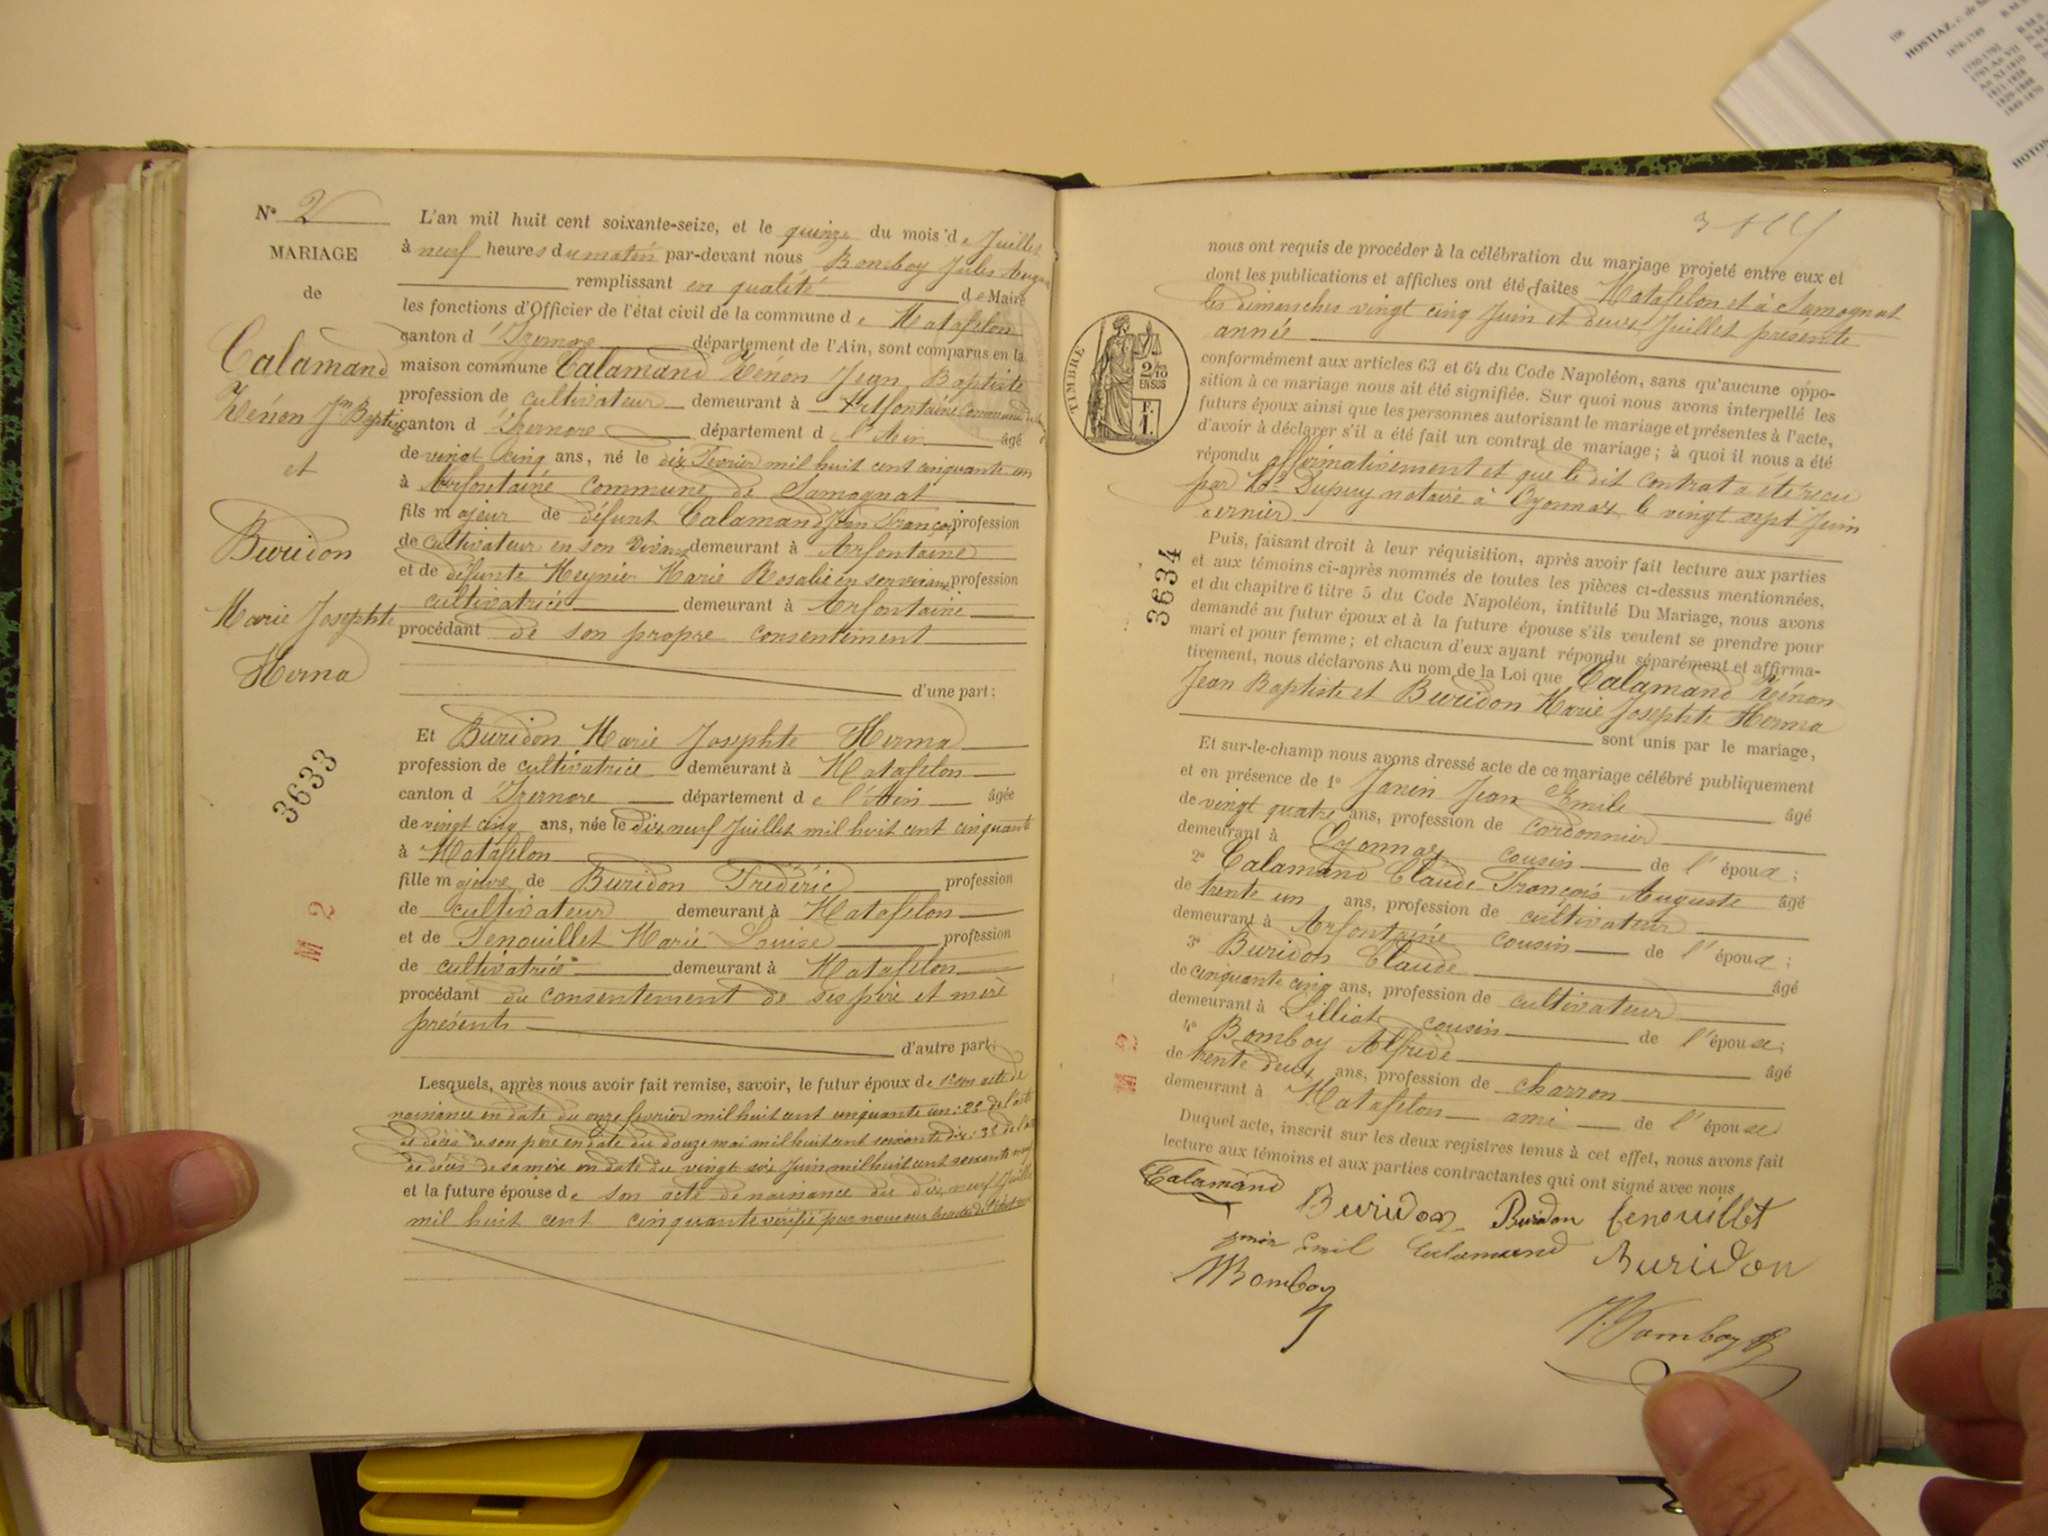 N° 2
MARIAGE
de
Calamand
Zénon Jn Bptiste
et
Buridon
Marie Josephte
Herma
3633
M 2
L'an mil huit cent soixante-seize, et le quinze du mois de Juillet
à neuf heures du matin par-devant nous Bomboy Jules
remplissant en qualité de Maire
les fonctions d'Officier de l'état civil de la commune de Matafelon
canton d'Izernore département de l'Ain, sont comparus en la
maison commune Calamand Zénon Jean Baptiste
profession de cultivateur demeurant à Arfontaine commune
canton d'Izernore département d l'Ain âgé
de vingt cinq ans, né le dix Fevrier mil huit cent cinquante un
à Arfontaine commune de Samognat
fils majeur de défunt Calamand Jean François profession
de cultivateur en son vivant demeurant à Arfontaine
et de défunte Meynier Marie Rosalie en son vivant profession
cultivatrice demeurant à Arfontaine
procédant de son propre consentement
d'une part;
Et Buridon Marie Josephte Herma
profession de cultivatrice demeurant à Matafelon
canton d'Izernore département de l'Ain âgée
de vingt cinq ans, née le dix neuf Juillet mil huit cent cinquante
à Matafelon
fille majeure de Buridon Frédéric profession
de cultivateur demeurant à Matafelon
et de Fenouillet Marie Louise profession
de cultivatrice demeurant à Matafelon
procédant du consentement de ses père et mère
présents
d'autre part;
Lesquels, après nous avoir fait remise, savoir, le futur époux de 1° son acte de
naissance en date du onze fevrier mil huit cent cinquante un: 2° de l'acte
de décès de son père en date du douze mai mil huit cent soixante dix: 3° de l'acte
de décès de sa mère en date du vingt six Juin mil huit cent soixante neuf
et la future épouse de son acte de naissance du dix neuf Juillet
mil huit cent cinquante vérifié par nous sur les actes de l'état civil
nous ont requis de procéder à la célébration du mariage projeté entre eux et
dont les publications et affiches ont été faites Matafelon et à Samognat
les dimanches vingt cinq Juin et deux Juillet présente
année
conformément aux articles 63 et 64 du Code Napoléon, sans qu'aucune oppo-
sition à ce mariage nous ait été signifiée. Sur quoi nous avons interpellé les
futurs époux ainsi que les personnes autorisant le mariage et présentes à l'acte,
d'avoir à déclarer s'il a été fait un contrat de mariage; à quoi il nous a été
répondu affirmativement et que le dit contrat a été recu
par Me Dupuy notaire à Oyonnax le vingt sept Juin
dernier
Puis, faisant droit à leur réquisition, après avoir fait lecture aux parties
et aux témoins ci-après nommés de toutes les pièces ci-dessus mentionnées,
et du chapitre 6 titre 5 du Code Napoléon, intitulé Du Mariage, nous avons
demandé au futur époux et à la future épouse s'ils veulent se prendre pour
mari et pour femme; et chacun d'eux ayant répondu séparément et affirma-
tivement, nous déclarons Au nom de la Loi que Calamand Zénon
Jean Baptiste et Buridon Marie Josephte Herma
sont unis par le mariage,
Et sur-le-champ nous avons dressé acte de ce mariage célébré publiquement
et en présence de 1° Janin Jean Emile âgé
de vingt quatre ans, profession de cordonnier
demeurant à Oyonnax cousin de l'époux;
2° Calamand Claude François Auguste âgé
de trente un ans, profession de cultivateur
demeurant à Arfontaine cousin de l'époux;
3° Buridon Claude âgé
de cinquante cinq ans, profession de cultivateur
demeurant à Lilliat cousin de l'épouse;
4° Bomboy Alfride âgé
de trente deux ans, profession de charron
demeurant à Matafelon ami de l'épouse
Duquel acte, inscrit sur les deux registres tenus à cet effet, nous avons fait
lecture aux témoins et aux parties contractantes qui ont signé avec nous
Calamand Buridon Buridon fenouillet
Emil Calamand Buridon
Bomboy
Bomboy
TIMBRE
2/10
EN SUS
F.
1.
3634
M 2
106
HOSTIAZ, c. de